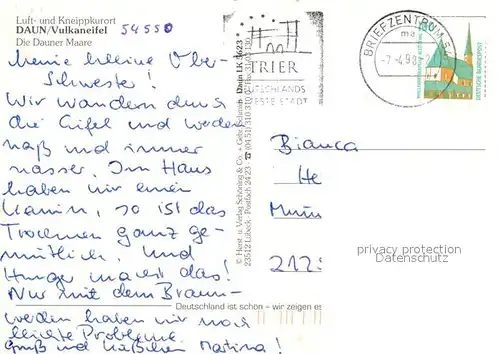 Luft- und Kneippkurort
DAUN/Vulkaneifel
Die Dauner Maare
54550
meine kleine Ober-
Schwester!
Wir wandern durch
die Eifel und werden
naß und immer
nasser. Im Haus
haben wir einen
Kamin, so ist das
Trocknen ganz ge-
mütlich. Und
Hunger macht das!
Nur mit dem Braun-
werden haben wir noch
leichte Probleme.
Gruß und Küßchen Martina!
© Horst u. Verlag Schöning & Co. · Gebr. Schmidt
23512 Lübeck · Postfach 24 23 ☎ (04 51) 310 31
Daun LK 5623
TRIER
DEUTSCHLANDS
ÄLTESTE STADT
BRIEFZENTRUM 54
ma
-7.-4.98
DEUTSCHE BUNDESPOST
Bianca
He
212
privacy protection
Datenschutz
Deutschland ist schön – wir zeigen es